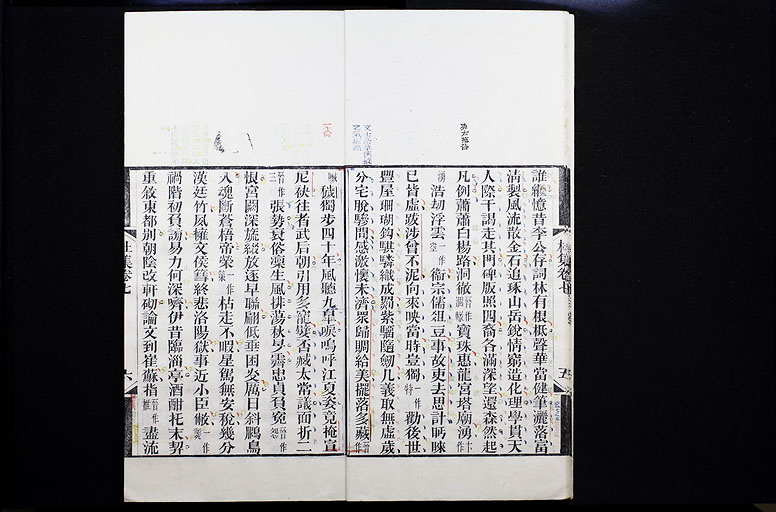 誰繼憶昔李公存詞林有根柢聲華當健筆灑落富
清製風流散金石追琢山岳銳情窮造化理學貫天
人際干謁走其門碑版照四裔各滿深望還森然起
凡例蕭蕭白楊路洞徹晉作寶珠惠龍宮塔廟湧
浩劫浮雲一作衛宗儒俎豆事故吏去思計眄睞
已皆虛跋涉曾不泥向來映當時豈獨一作特勸後世
豐屋珊瑚鉤騏驎織成罽紫騮隨劒几義取無虛歲
分宅脫驂間感激懷未濟眾歸賙給美擺落多藏晉作
穢獨步四十年風聽九皋唳嗚呼江夏姿竟掩宣
尼袂往者武后朝引用多寵嬖否臧太常議面折二
晉作三張勢衰俗凜生風排蕩秋旻霽忠貞負冤晉作怨
恨宮闕深旒綴放逐早聯翩低垂困炎厲日斜鵩鳥
入魂斷蒼梧帝榮一作枯走不暇星駕無安稅幾分
漢廷竹夙擁文侯篲終悲洛陽獄事近小臣斃一作
禍階初負謗易力何深嚌伊昔臨淄亭酒酣托末契
重敘東都別朝陰改軒砌論文到崔蘇指晉作盡流
杜集卷七
六
五